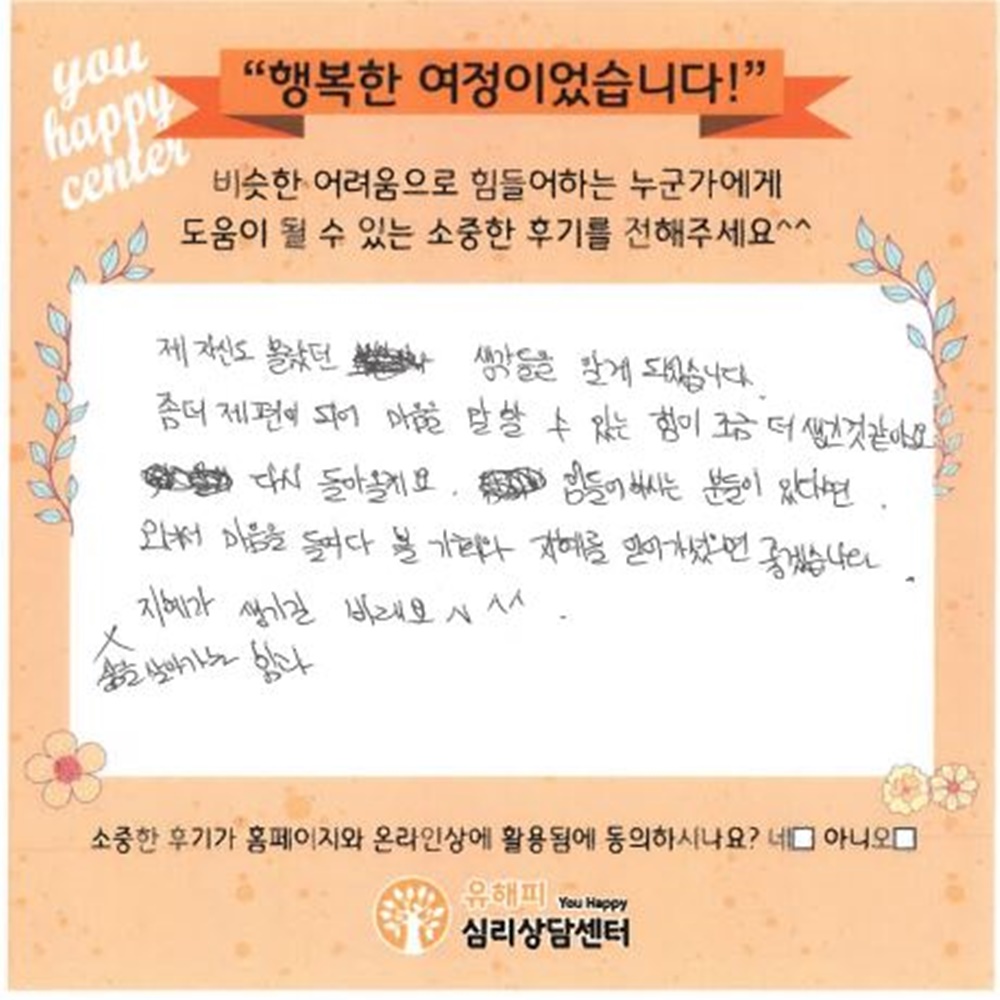 you
happy
center
“행복한 여정이었습니다!”
비슷한 어려움으로 힘들어하는 누군가에게
도움이 될 수 있는 소중한 후기를 전해주세요^^
제 자신도 몰랐던 생각들을 알게 되었습니다.
좀더 제편이 되어 마음을 말할 수 있는 힘이 조금 더 생긴것같아요
다시 돌아올게요. 힘들어하시는 분들이 있다면
와서 마음을 들여다 볼 기회와 지혜를 얻어가셨으면 좋겠습니다.
지혜가 생기길 바래요 ^^.
삶을 살아가는 힘과
소중한 후기가 홈페이지와 온라인상에 활용됨에 동의하시나요? 네□ 아니오□
유해피 You Happy
심리상담센터